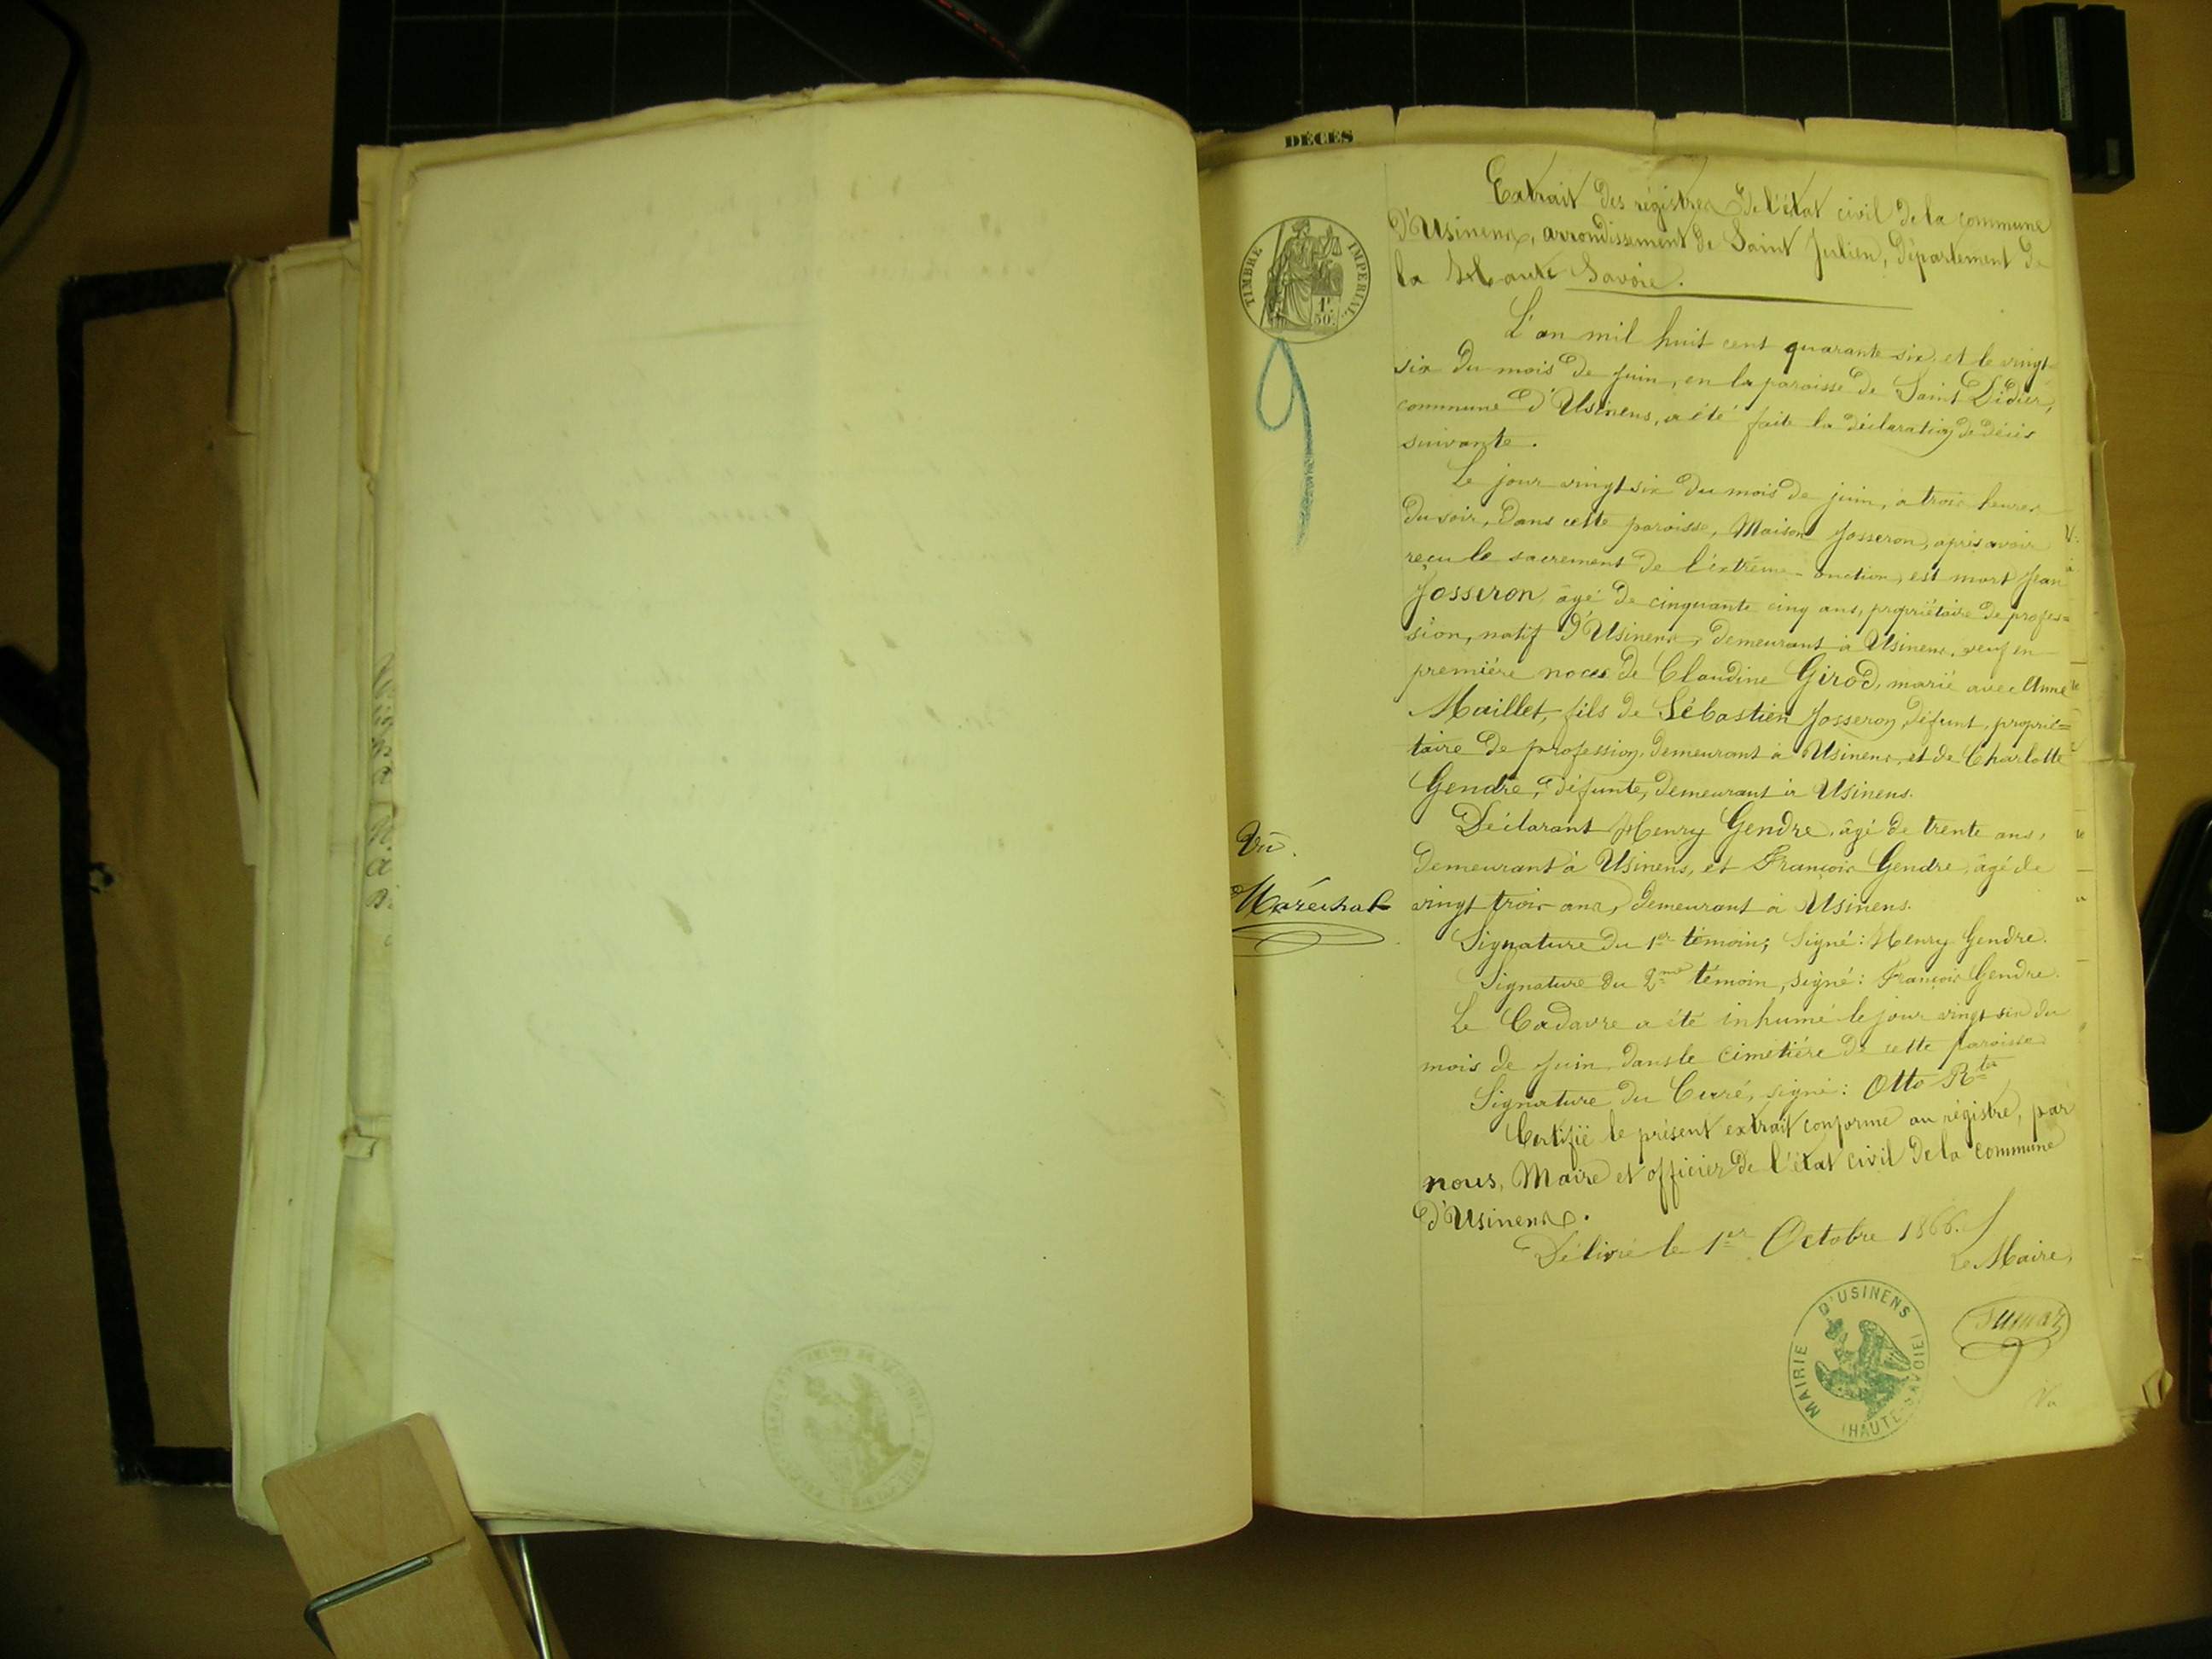 DÉCÈS
Extrait des régistres de l'état civil de la commune
d'Usinens, arrondissement de Saint Julien, Département de
la Haute Savoie.
TIMBRE IMPÉRIAL
1F
50c
L'an mil huit cent quarante six, et le vingt
six du mois de juin, en la paroisse de Saint Didier,
commune d'Usinens, a été faite la déclaration de décès
suivante.
Le jour vingt six du mois de juin, à trois heures
du soir, dans cette paroisse, Maison Josseron, après avoir
reçu le sacrement de l'extrême-onction, est mort Jean
Josseron, âgé de cinquante cinq ans, propriétaire de profes=
sion, natif d'Usinens, demeurant à Usinens, veuf en
première noces de Claudine Girod, marié avec Anne
Maillet, fils de Sébastien Josseron, défunt, proprié=
taire de profession, demeurant à Usinens, et de Charlotte
Gendre, défunte, demeurant à Usinens.
Déclarant Henry Gendre, âgé de trente ans,
demeurant à Usinens, et François Gendre, âgé de
vingt trois ans, demeurant à Usinens.
Vu.
Maréchal
Signature du 1er témoin; signé: Henry Gendre.
Signature du 2me témoin, signé: François Gendre.
Le Cadavre a été inhumé le jour vingt six du
mois de Juin dans le cimetière de cette paroisse
Signature du Curé, signé: Otto Rta
Certifié le présent extrait conforme au régistre, par
nous, Maire et officier de l'état civil de la commune
d'Usinens.
Délivré le 1er Octobre 1866.
Le Maire,
MAIRIE D'USINENS
(HAUTE-SAVOIE)